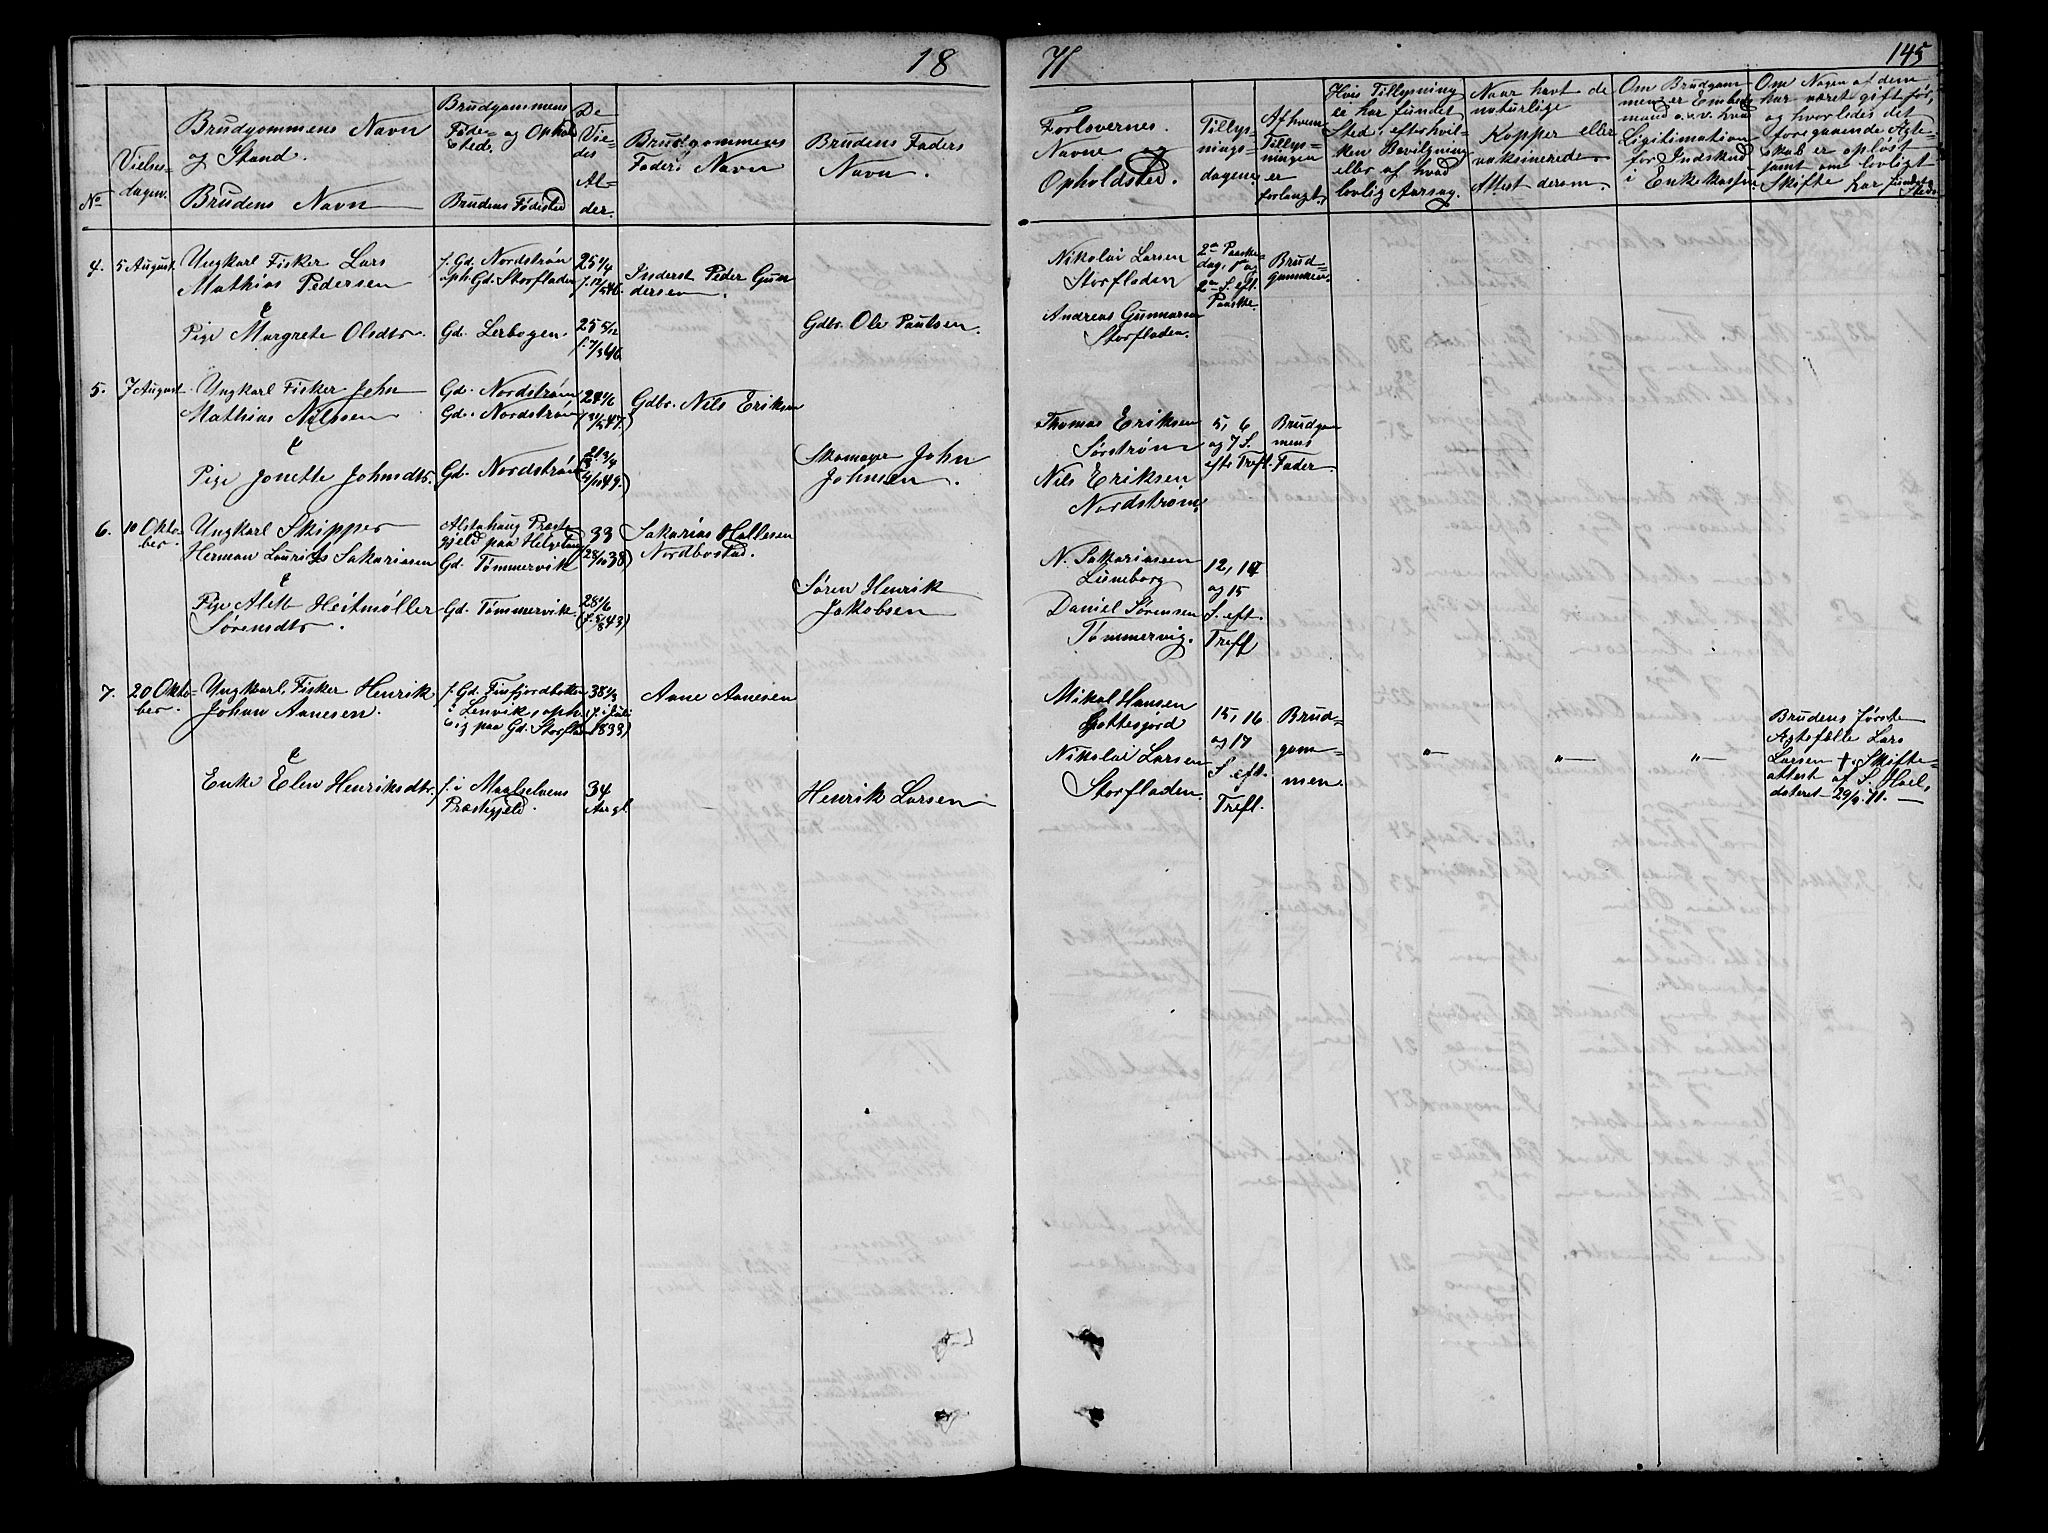 18 71 145
No
Vielses-
dagen.
Brudgommens Navn
og Stand.
Brudens Navn
Brudgommens
Føde- og Ophold
sted.
Brudens Fødested
De
Vie-
des
Al-
der.
Brudgommens
Faders Navn
Brudens Faders
Navn.
Forlovernes
Navne og
Opholdsted.
Tillys-
nings-
dagene
Af hvem
Tillys-
ningen
er
forlangt.
Hvis Tillysning
ei har fundet
Sted, efter hvil-
ken Bevilgning
eller af hvad
lovlig Aarsag.
Naar havt de
naturlige
Kopper eller
vaksinerede
Attest derom.
Om Brudgom
men er Embeds
mand o.s.v. hvad
Legitimation
for Indskud
i Enkekassen
Om Nogen af dem
har været gift før,
og hvorledes det
foregaaende Ægte-
skab er opløst
samt om lovligt
Skifte har fundet
Sted.
4. 5 August. Ungkarl Fisker Lars
Mathias Pedersen
&
Pige Margrete Olsdtr.
f. Gd. Nordstrøn
oph. Gd. Storfladen
Gd. Lerbogen.
25 1/4
25 5/12
Inderst Peder Gun
dersen.
Gdbr. Ole Paulsen.
Nikolai Larsen
Storfladen
Andreas Gunnarsen
Storfladen.
2den Paaske-
dag, 1 og
2den S. eft.
Paaske.
Brud-
gommen.
5. 7 August Ungkarl Fisker John
Mathias Nilssen
&
Pige Jonette Johnsdtr.
Gd. Nordstrøn
Gd. Nordstrøn
Gd. Nordstrøn
24 1/6
21 3/4
Gdbr. Nils Eriksen
Skomager John
Johnsen.
Thomas Eriksen
Sørstrøm
Nils Eriksen
Nordstrøm
5, 6
og 7 S.
efte Tref.
Brudgom
mens
Fader.
6. 10 Okto-
ber
Ungkarl Skipper
Herman Laurits Sakariasen
&
Pige Alette Heitmøller
Sørensdtr.
Alstahaug Præste-
gjeld paa
Gd. Tømmervik
Gd. Tømmervik
33
(28/10 38)
28 1/6
(f. 5/8 43)
Sakarias Hallesen
Nordbostad.
Søren Henrik
Jakobsen
N. Sakariassen
Luneborg
Daniel Sørensen
Tømmervig.
12, 14
og 15
S. eft.
Treff
7. 20 Okto-
ber.
Ungkarl, Fisker Henrik
Johan Aanesen.
&
Enke Elen Henriksdtr.
f. Gd. Finfjordbotten
i Lenvik, oph.
sig paa Gd. Storfladen
f. i Maalselvens
Præstegjeld.
38 1/3
(f. i Juli
1833)
34
Aar gl.
Aane Aanesen
Henrik Larsen
Mikal Hansen
Gottesjord
Nikolai Larsen
Storfladen.
15, 16
og 17
S eft.
Trefl.
Brud-
gom-
men.
"
"
"
Brudens første
Ægtefælle Lars
Larsen †. Skifte-
attest af S. Hoel,
dateret 29/9 71.